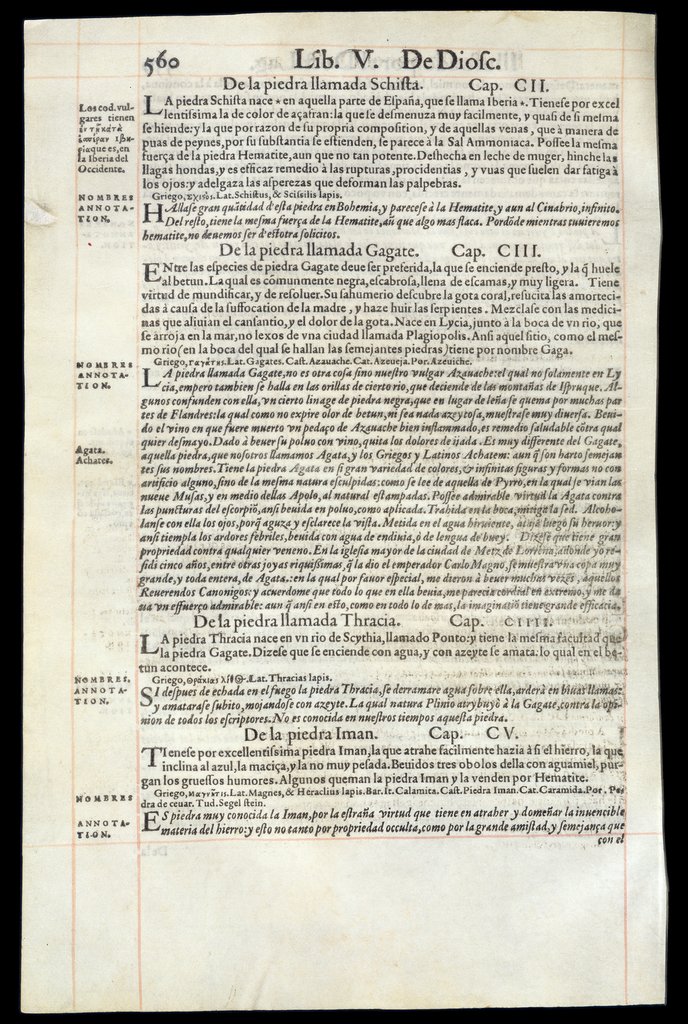 560 Lib. V. De Diosc.
De la piedra llamada Schista. Cap. CII.
Los cod. vul-
gares tienen
piaque es, en
la Iberia del
Occidente.
LA piedra Schista nace * en aquella parte de España, que se llama Iberia *. Tienese por excel
lentissima la de color de açafran: la que se desmenuza muy facilmente, y quasi de si mesma
se hiende: y la que por razon de su propria composition, y de aquellas venas, que à manera de
puas de peynes, por su substantia se estienden, se parece à la Sal Ammoniaca. Possee la mesma
fuerça de la piedra Hematite, aun que no tan potente. Deshecha en leche de muger, hinche las
llagas hondas, y es efficaz remedio à las rupturas, procidentias, y vuas que suelen dar fatiga à
los ojos: y adelgaza las asperezas que deforman las palpebras.
NOMBRES
Griego, σχιςὸς. Lat. Schistus, & Scissilis lapis.
ANNOTA-
TION.
HAllase gran quātidad d'esta piedra en Bohemia, y parecese à la Hematite, y aun al Cinabrio, infinito.
Del resto, tiene la mesma fuerça de la Hematite, aū que algo mas flaca. Pordōde mientras tuuieremos
hematite, no deuemos ser d'estotra solicitos.
De la piedra llamada Gagate. Cap. CIII.
ENtre las especies de piedra Gagate deue ser preferida, la que se enciende presto, y la q̄ huele
al betun. La qual es cōmunmente negra, escabrosa, llena de escamas, y muy ligera. Tiene
virtud de mundificar, y de resoluer. Su sahumerio descubre la gota coral, resucita las amorteci-
das à causa de la suffocation de la madre, y haze huir las serpientes. Mezclase con las medici-
nas que aliuian el cansantio, y el dolor de la gota. Nace en Lycia, junto à la boca de vn rio, que
se arroja en la mar, no lexos de vna ciudad llamada Plagiopolis. Ansi aquel sitio, como el mes-
mo rio (en la boca del qual se hallan las semejantes piedras) tiene por nombre Gaga.
NOMBRES
Griego, γαγάτης. Lat. Gagates. Cast. Azauache. Cat. Azeueja. Por. Azeuiche.
ANNOTA-
TION.
LA piedra llamada Gagate, no es otra cosa sino nuestro vulgar Azauache: el qual no solamente en Ly
cia, empero tambien se halla en las orillas de cierto rio, que deciende de las montañas de Ispruque. Al-
gunos confunden con ella, vn cierto linage de piedra negra, que en lugar de leña se quema por muchas par
tes de Flandres: la qual como no expire olor de betun, ni sea nada azeytosa, muestrase muy diuersa. Beui-
do el vino en que fuere muerto vn pedaço de Azauache bien inflammado, es remedio saludable cōtra qual
quier desmayo. Dado à beuer su poluo con vino, quita los dolores de ijada. Es muy differente del Gagate,
Agata.
Achates.
aquella piedra, que nosotros llamamos Agata, y los Griegos y Latinos Achatem: aun q̄ son harto semejan
tes sus nombres. Tiene la piedra Agata en si gran variedad de colores, & infinitas figuras y formas no con
artificio alguno, sino de la mesma natura esculpidas: como se lee de aquella de Pyrro, en la qual se vian las
nueue Musas, y en medio dellas Apolo, al natural estampadas. Possee admirable virtud la Agata contra
las puncturas del escorpiō, ansi beuida en poluo, como aplicada. Trahida en la boca, mitiga la sed. Alcoho-
lanse con ella los ojos, porq̄ aguza y esclarece la vista. Metida en el agua hiruiente, ataja luego su heruor: y
ansi tiempla los ardores febriles, beuida con agua de endiuia, ò de lengua de buey. Dizese que tiene gran
propriedad contra qualquier veneno. En la iglesia mayor de la ciudad de Metz de Lorena, adonde yo re-
sidi cinco años, entre otras joyas riquissimas, q̄ la dio el emperador Carlo Magno, se muestra vna copa muy
grande, y toda entera, de Agata.: en la qual por fauor especial, me dieron à beuer muchas vezes, aquellos
Reuerendos Canonigos: y acuerdome que todo lo que en ella beuia, me parecia cordial en extremo, y me da
ua vn effuerço admirable: aun q̄ ansi en esto, como en todo lo de mas, la imaginatiō tiene grande efficacia.
De la piedra llamada Thracia. Cap. CIIII.
LA piedra Thracia nace en vn rio de Scythia, llamado Ponto: y tiene la mesma facultad que
la piedra Gagate. Dizese que se enciende con agua, y con azeyte se amata: lo qual en el be-
tun acontece.
NOMBRES.
Griego, Θράκιας λίθος. Lat. Thracias lapis.
ANNOTA-
TION.
SI despues de echada en el fuego la piedra Thracia, se derramare agua sobre ella, arderà en biuas llamas:
y amatarase subito, mojandose con azeyte. La qual natura Plinio atrybuyò à la Gagate, contra la opi-
nion de todos los escriptores. No es conocida en nuestros tiempos aquesta piedra.
De la piedra Iman. Cap. CV.
TIenese por excellentissima piedra Iman, la que atrahe facilmente hazia à si el hierro, la que
inclina al azul, la maciça, y la no muy pesada. Beuidos tres obolos della con aguamiel, pur-
gan los gruessos humores. Algunos queman la piedra Iman y la venden por Hematite.
NOMBRES
Griego, μαγνῆτις. Lat. Magnes, & Heraclius lapis. Bar. It. Calamita. Cast. Piedra Iman. Cat. Caramida. Por. Pe
dra de ceuar. Tud. Segel stein.
ANNOTA-
TION.
ES piedra muy conocida la Iman, por la estraña virtud que tiene en atraher y domeñar la inuencible
materia del hierro: y esto no tanto por propriedad occulta, como por la grande amistad, y semejança que
con el